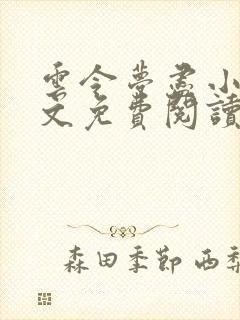 雲令夢盡小
文免費閱讀
森田季節 西